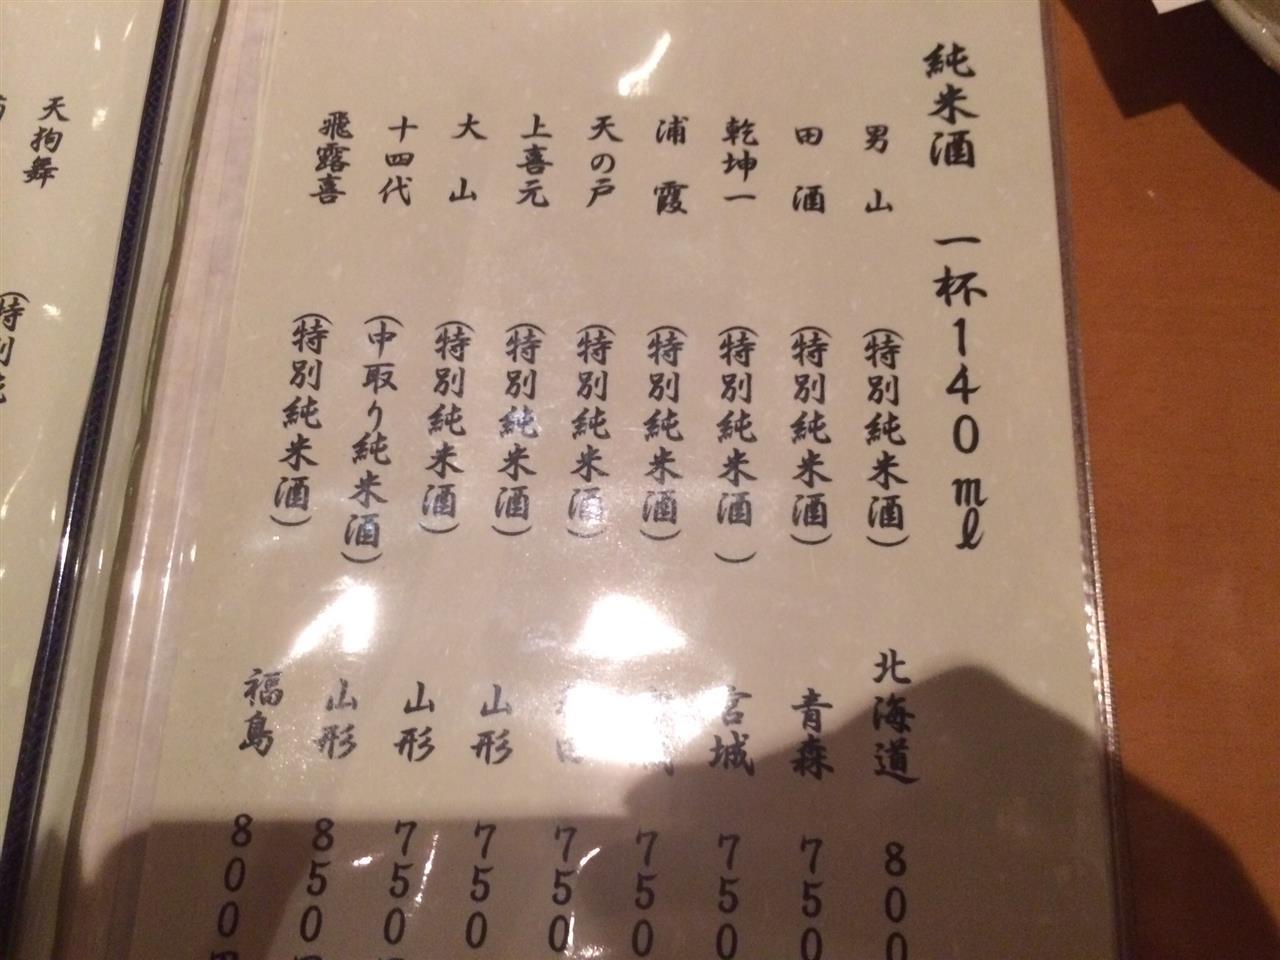 純米酒 一杯140ml
男山 (特別純米酒) 北海道 800
田酒 (特別純米酒) 青森 750
乾坤一 (特別純米酒) 宮城 750
浦霞 (特別純米酒) 750
天の戸 (特別純米酒) 750
上喜元 (特別純米酒) 山形 750
大山 (特別純米酒) 山形 750
十四代 (中取り純米酒) 山形 850円
飛露喜 (特別純米酒) 福島 800円
天狗舞 (特別純